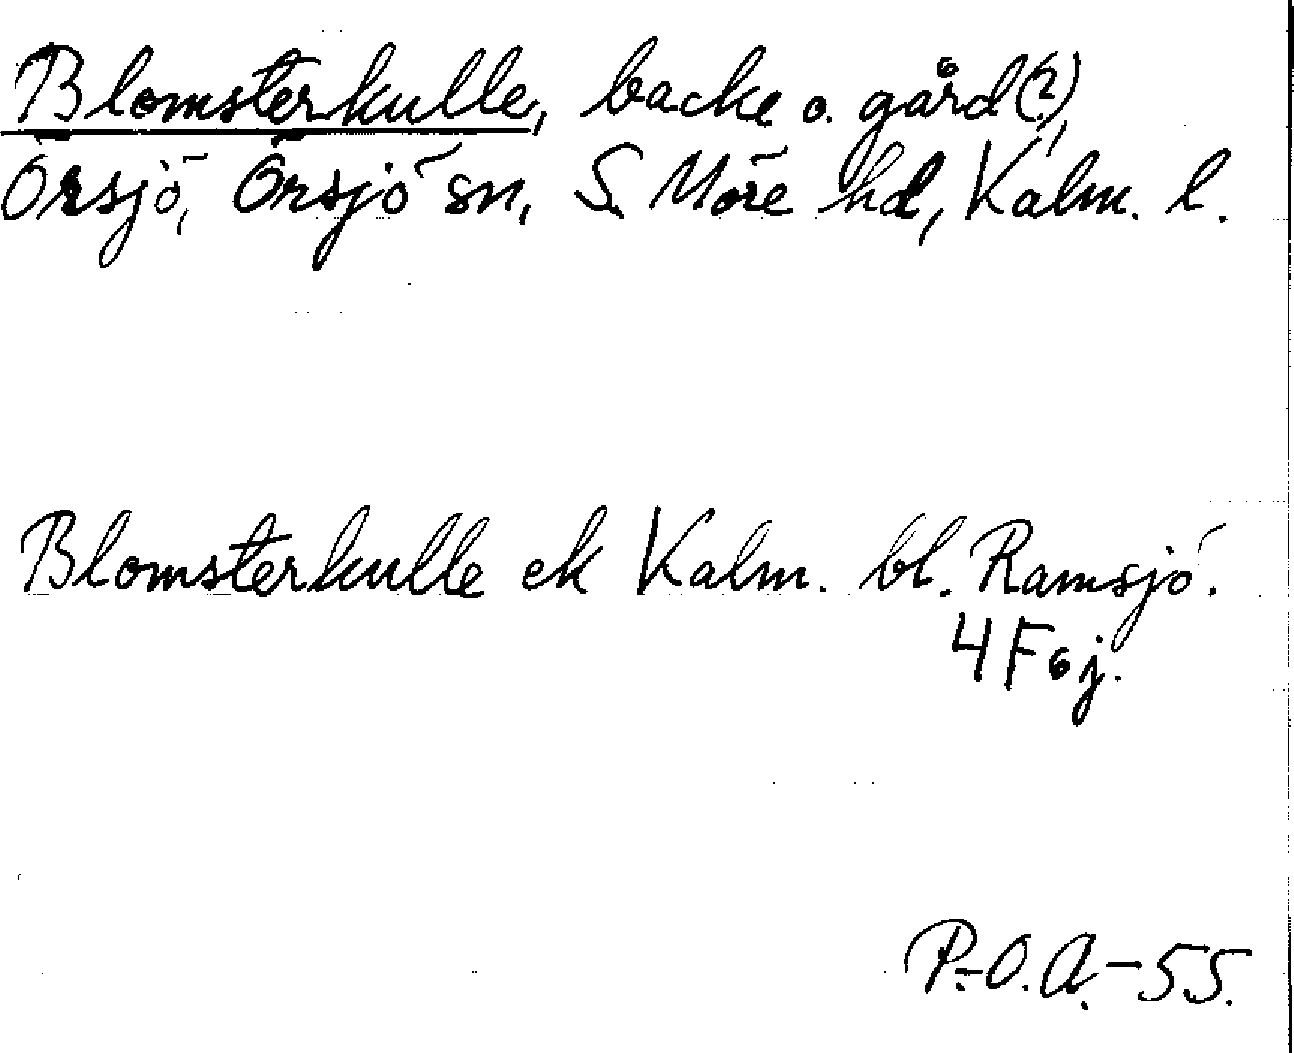 Blomsterkulle, backe o. gård(?),
Örsjö, Örsjö sn, S. Möre hd, Kalm. l.
Blomsterkulle ek Kalm. bl. Ramsjö.
4 F 6 j.
P.-O. A.-55.